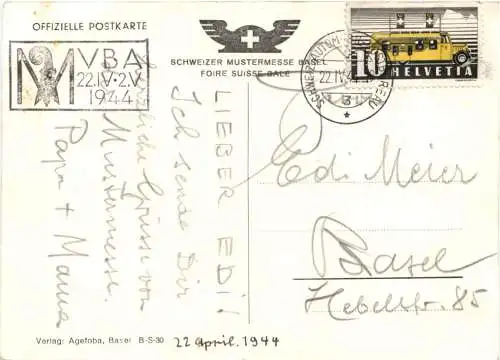 OFFIZIELLE POSTKARTE
SCHWEIZER MUSTERMESSE BASEL
FOIRE SUISSE BALE
M VBA
22.IV-2.V
1944
SCHWEIZ. AUTOM
22.IV.44
10 HELVETIA
LIEBER EDI!
Ich sende Dir
herzliche Grüsse von
Mustermesse.
Papa + Mama
Edi Meier
Basel
Hebelstr. 85
Verlag: Agefoba, Basel B-S-30
22 April. 1944